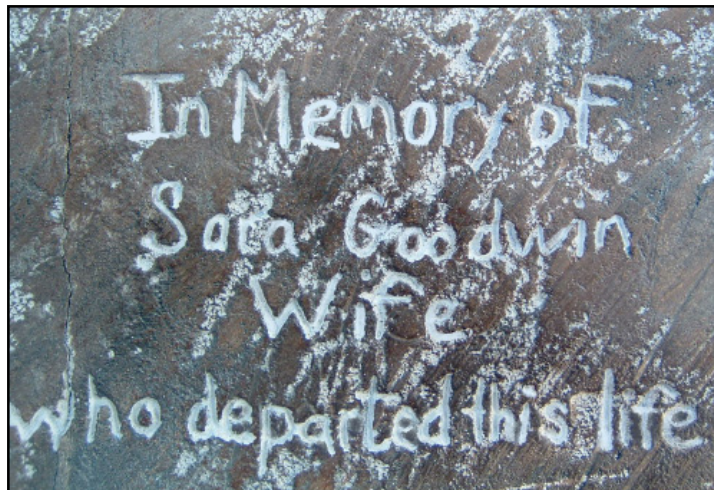 In Memory of
Sara Goodwin
Wife
who departed this life